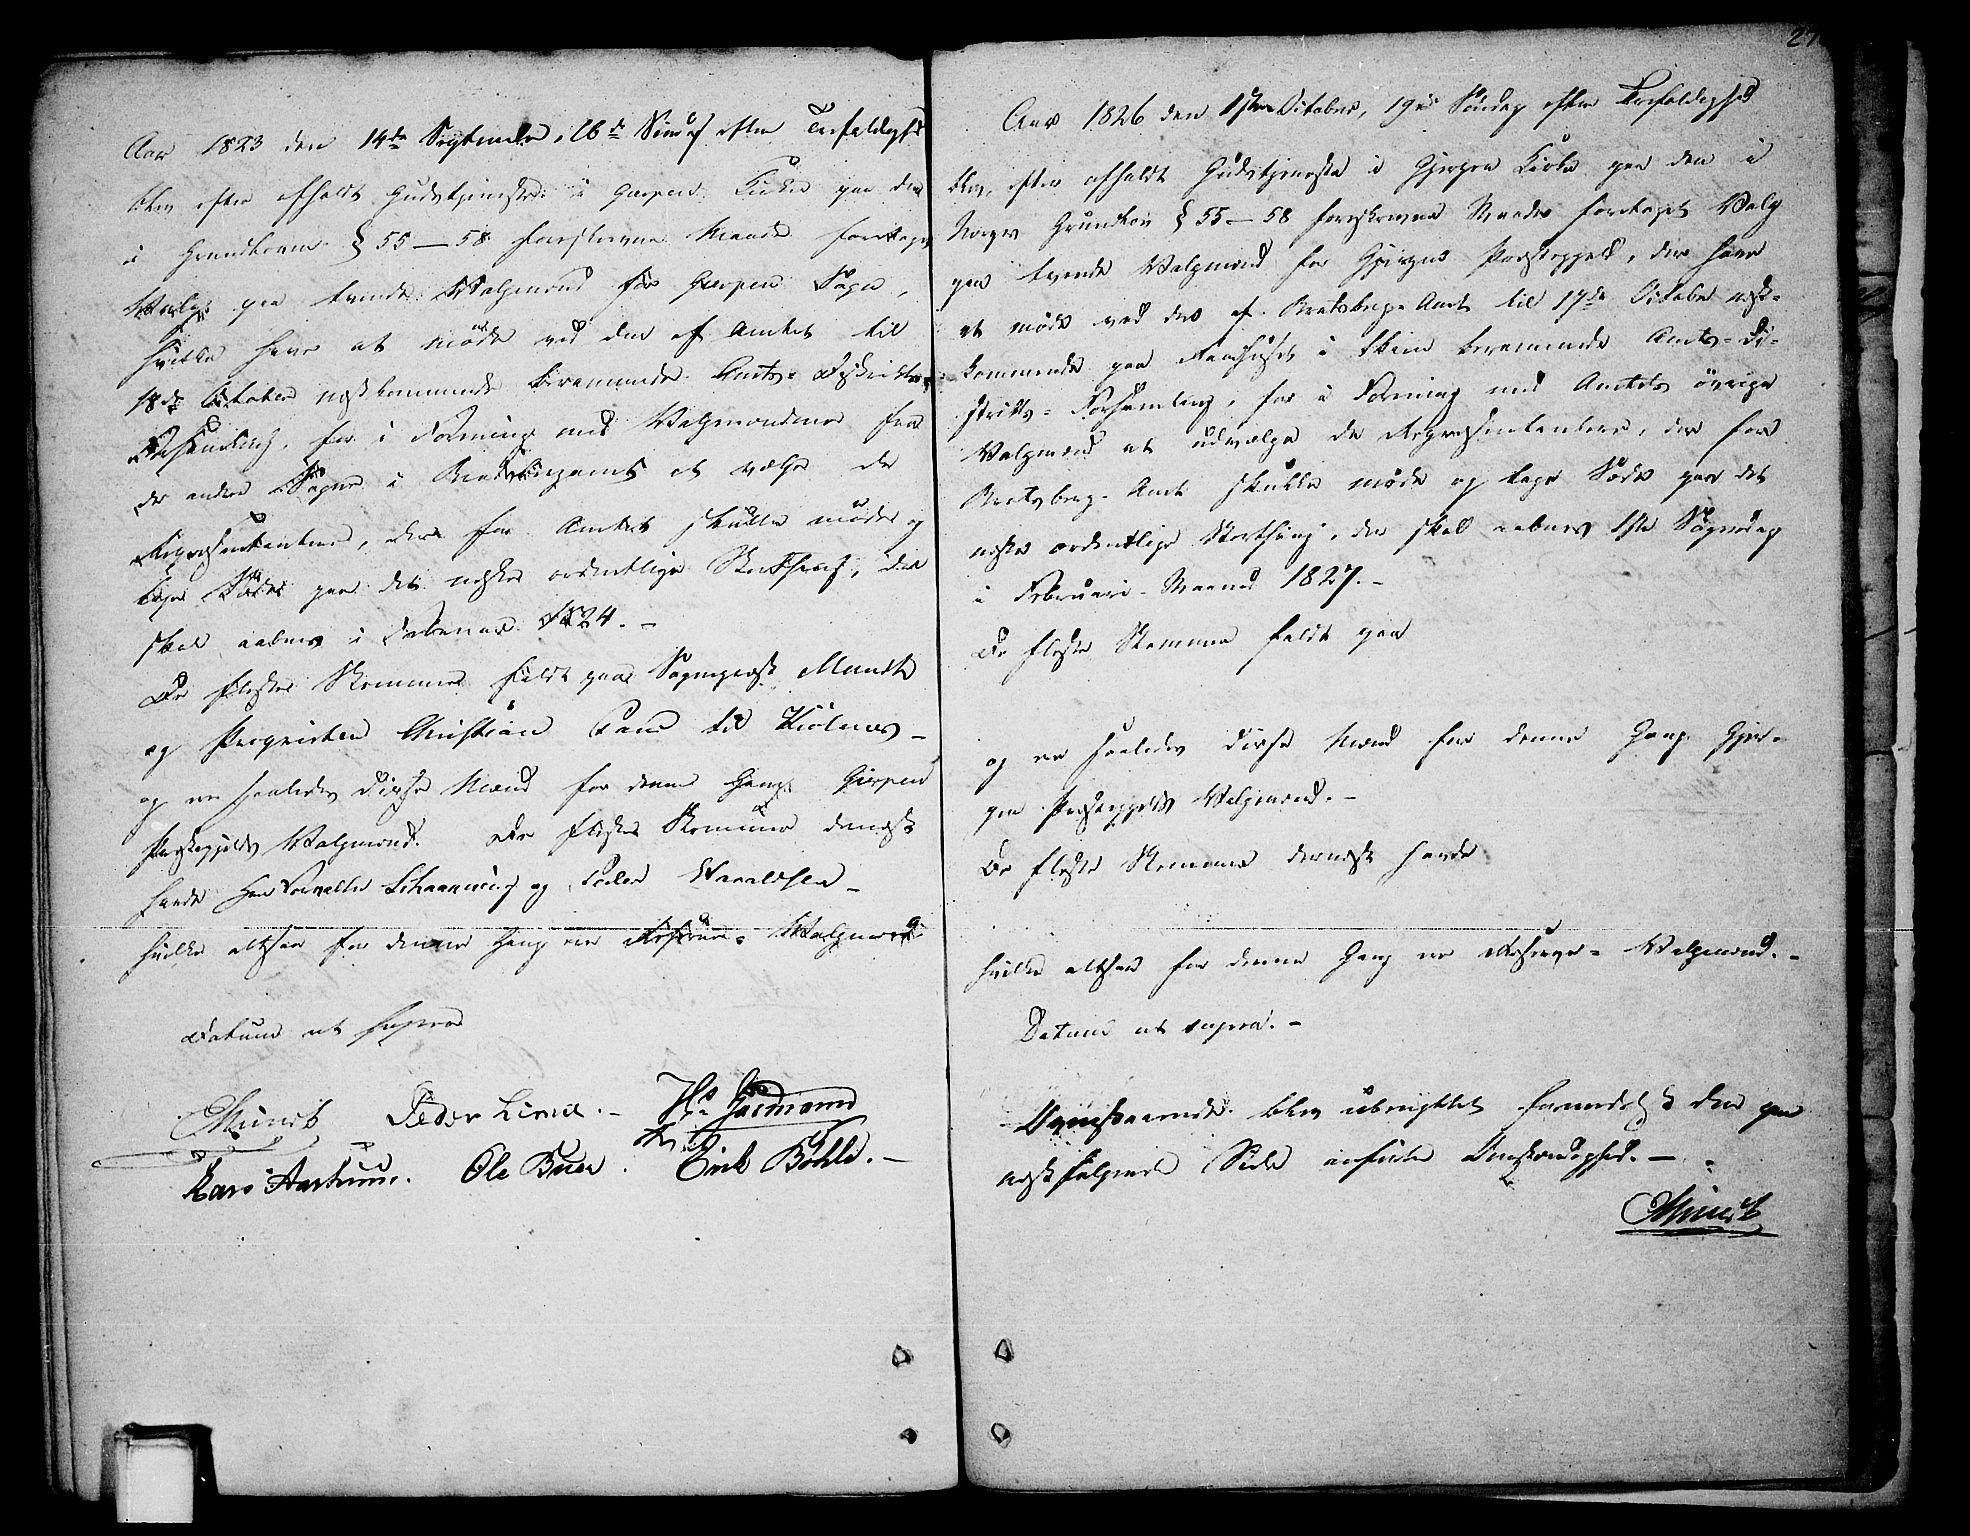 Aar 1823 den 14de Septembr, 16de Søndag efter Trefoldighed
blev efter afholdt Gudstjeneste i Gierpen Kirke paa den
i Grundloven § 55 – 58 foreskrevne Maade foretaget
Valg paa tvende Valgmænd for Gierpen Sogn,
hvilke have at møde ved den af Amtet til
18de October næstkommende berammede Amts-Districts-
Forsamling, for i Forening med Valgmændene fra
de andre Sogne i Bratsbergamt at vælge de
Repræsentanter, der for Amtet skulle møde og
tage Sæde paa det næste ordentlige Storthing, der
skal aabnes i Februar 1824. –
De fleste Stemmer faldt paa Sogneprest Munch
og Proprietær Christian til Kiølnes –
og ere saaledes disse Mænd for denne Gang Gierpen
Præstegjelds Valgmænd. De fleste Stemmer dernæst
havde Herr Forvalter Schaanning og Peder Haraldsen –
hvilke altsaa for denne Gang ere Reserve-Valgmænd.
Datum ut supra
Munch Peder Limie. – Hs Gasmann
Lars Aarhuus. Ole Buer. Erik Bøhle. –
27
Aar 1826 den 1ste October, 19de Søndag efter Trefoldighed
blev, efter afholdt Gudstjeneste i Gjerpen Kirke paa den i
Norges Grundlov § 55 – 58 foreskrevne Maade foretaget Valg
paa tvende Valgmænd for Gjerpens Præstegjeld, der have
at møde ved det af Bratsberg-Amt til 17de October næst-
kommende paa Raadhuset i Skien berammede Amts-Di-
stricts-Forsamling, for i Forening med Amtets øvrige
Valgmænd at udvælge de Repræsentantere, der for
Bratsberg-Amt skulle møde og tage Sæde paa det
næste ordentlige Storthing, der skal aabnes 1ste Søgnedag
i Februari-Maaned 1827. –
De fleste Stemmer faldt paa
og ere saaledes disse Mænd for denne Gang Gjer-
pen Præstegjelds Valgmænd. –
De fleste Stemmer dernæst havde
hvilke altsaa for denne Gang ere Reserve-Valgmænd. –
Datum ut supra. –
Ovenstaaende blev ubenyttet formedelst den paa
næstfølgende Side anførte Omstændighed. –
Munch